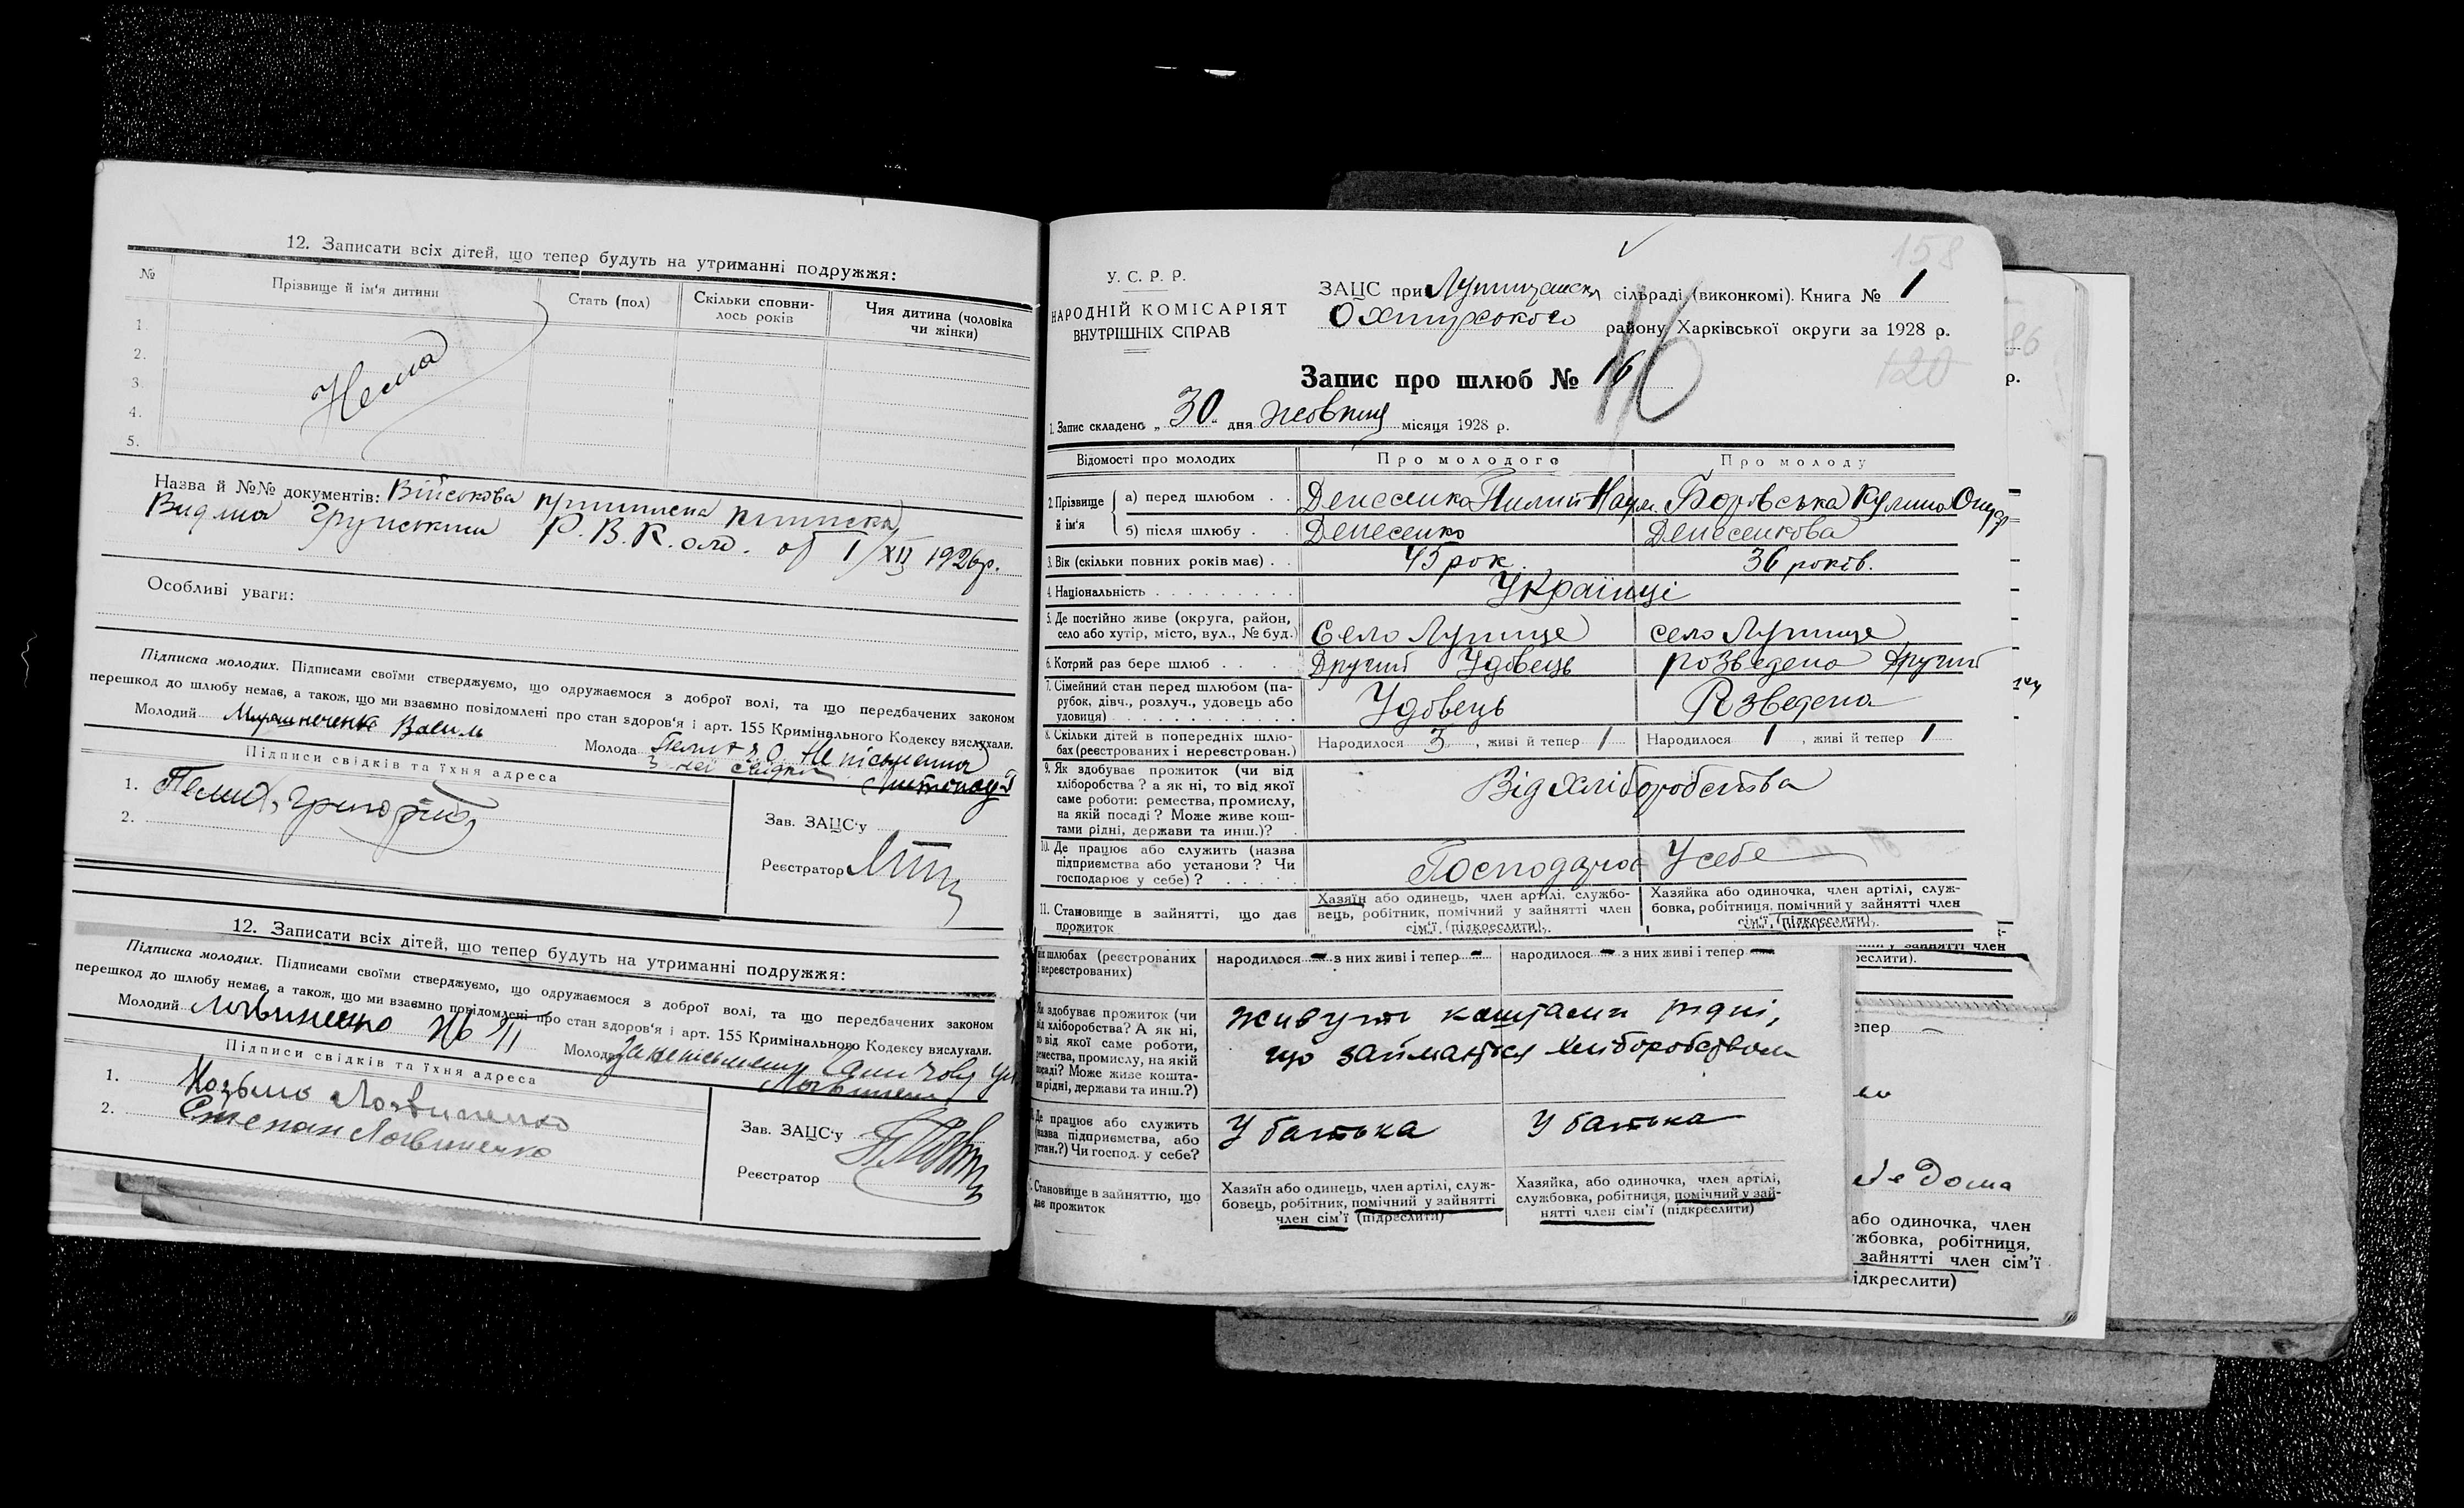 12. Записати всіх дітей, що тепер будуть на утриманні подружжя:
№ Прізвище й ім'я дитини Стать (пол) Скільки сповнилось років Чия дитина (чоловіка чи жінки)
1.
2.
3.
4.
5.
Нема
Назва й №№ документів: Військова приписна
Видана Р.В.К. об 1/XII 1926 р.
Особливі уваги:
Підписка молодих. Підписами своїми стверджуємо, що одружаємося з доброї волі, та що передбачених законом
перешкод до шлюбу немає, а також, що ми взаємно повідомлені про стан здоров'я і арт. 155 Кримінального Кодексу вислухали.
Молодий Мирошниченко Василь Молода
Підписи свідків та їхня адреса
1.
2.
Зав. ЗАЦС'у
Реєстратор
12. Записати всіх дітей, що тепер будуть на утриманні подружжя:
Підписка молодих. Підписами своїми стверджуємо, що одружаємося з доброї волі, та що передбачених законом
перешкод до шлюбу немає, а також, що ми взаємно повідомлені про стан здоров'я і арт. 155 Кримінального Кодексу вислухали.
Молодий Молода
Підписи свідків та їхня адреса
1. Козьма Логвиненко
2. Степан Логвиненко
Зав. ЗАЦС'у
Реєстратор
158
У. С. Р. Р.
НАРОДНІЙ КОМІСАРІЯТ
ВНУТРІШНІХ СПРАВ
ЗАЦС при сільраді (виконкомі). Книга № 1
району Харківської округи за 1928 р.
120
Запис про шлюб № 16
16
1. Запис складено „30" дня жовтня місяця 1928 р.
Відомості про молодих Про молодого Про молоду
2. Прізвище й ім'я
а) перед шлюбом . . Денесенко Пилип Наум. Боровська Кулина
б) після шлюбу . . Денесенко Денесенкова
3. Вік (скільки повних років має) . . 43 рок 36 років.
4. Національність . . . . . . . . . Українці
5. Де постійно живе (округа, район,
село або хутір, місто, вул., № буд.) Село Лутище село Лутище
6. Котрий раз бере шлюб . . . . Другий Удовець розведена другий
7. Сімейний стан перед шлюбом (парубок, дівч., розлуч., удовець або
удовиця) . . . . . . . . . . . . Удовець Розведена
8. Скільки дітей в попередніх шлюбах (реєстрованих і нереєстрован.) Народилося 3, живі й тепер 1 Народилося 1, живі й тепер 1
9. Як здобуває прожиток (чи від
хліборобства? а як ні, то від якої
саме роботи: ремества, промислу,
на якій посаді? Може живе коштами рідні, держави та инш.)?
Від хліборобства
10. Де працює або служить (назва
підприємства або установи? Чи
господарює у себе)? . . . . .
Господарює У себе
11. Становище в зайнятті, що дає
прожиток
Хазяїн або одинець, член артілі, службовець, робітник, помічний у зайнятті член
сім'ї (підкреслити).
Хазяйка або одиночка, член артілі, службовка, робітниця, помічний у зайнятті член
сім'ї, (підкреслити).
их шлюбах (реєстрованих
і нереєстрованих) народилося - з них живі і тепер - народилося - з них живі і тепер -
Як здобуває прожиток (чи
від хліборобства? А як ні,
то від якої саме роботи,
ремества, промислу, на якій
посаді? Може живе коштами рідні, держави та инш.?)
живуть коштами рідні,
що займаються хліборобством
Де працює або служить
(назва підприємства, або
устан.?) Чи господ. у себе?
У батька У батька
Становище в зайняттю, що
дає прожиток
Хазяїн або одинець, член артілі, службовець, робітник, помічний у зайнятті
член сім'ї (підкреслити)
Хазяйка, або одиночка, член артілі,
службовка, робітниця, помічний у зайнятті член сім'ї (підкреслити)
86
р.
у зайнятті член
реслити).
епер
дома
або одиночка, член
жбовка, робітниця,
зайнятті член сім'ї
ідкреслити)